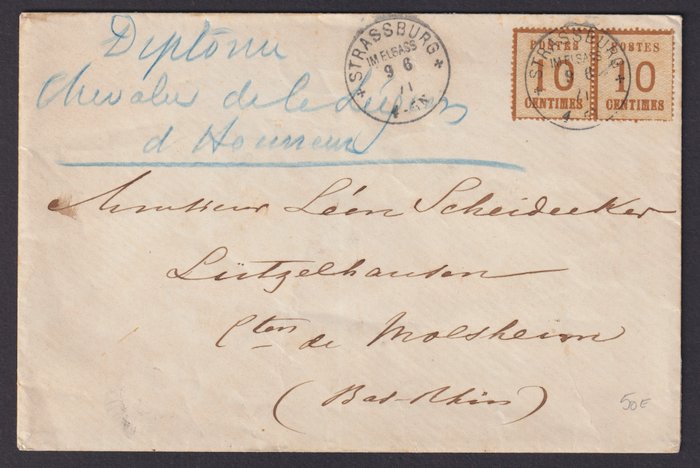 Diplôme
Chevalier de la Légion
d Honneur
STRASSBURG
IM ELSASS
9 6
71
POSTES
10
CENTIMES
POSTES
10
CENTIMES
STRASSBURG
IM ELSASS
9 6
71
Monsieur Léon Scheidecker
Lützelhausen
Cton de Molsheim
(Bas-Rhin)
50E